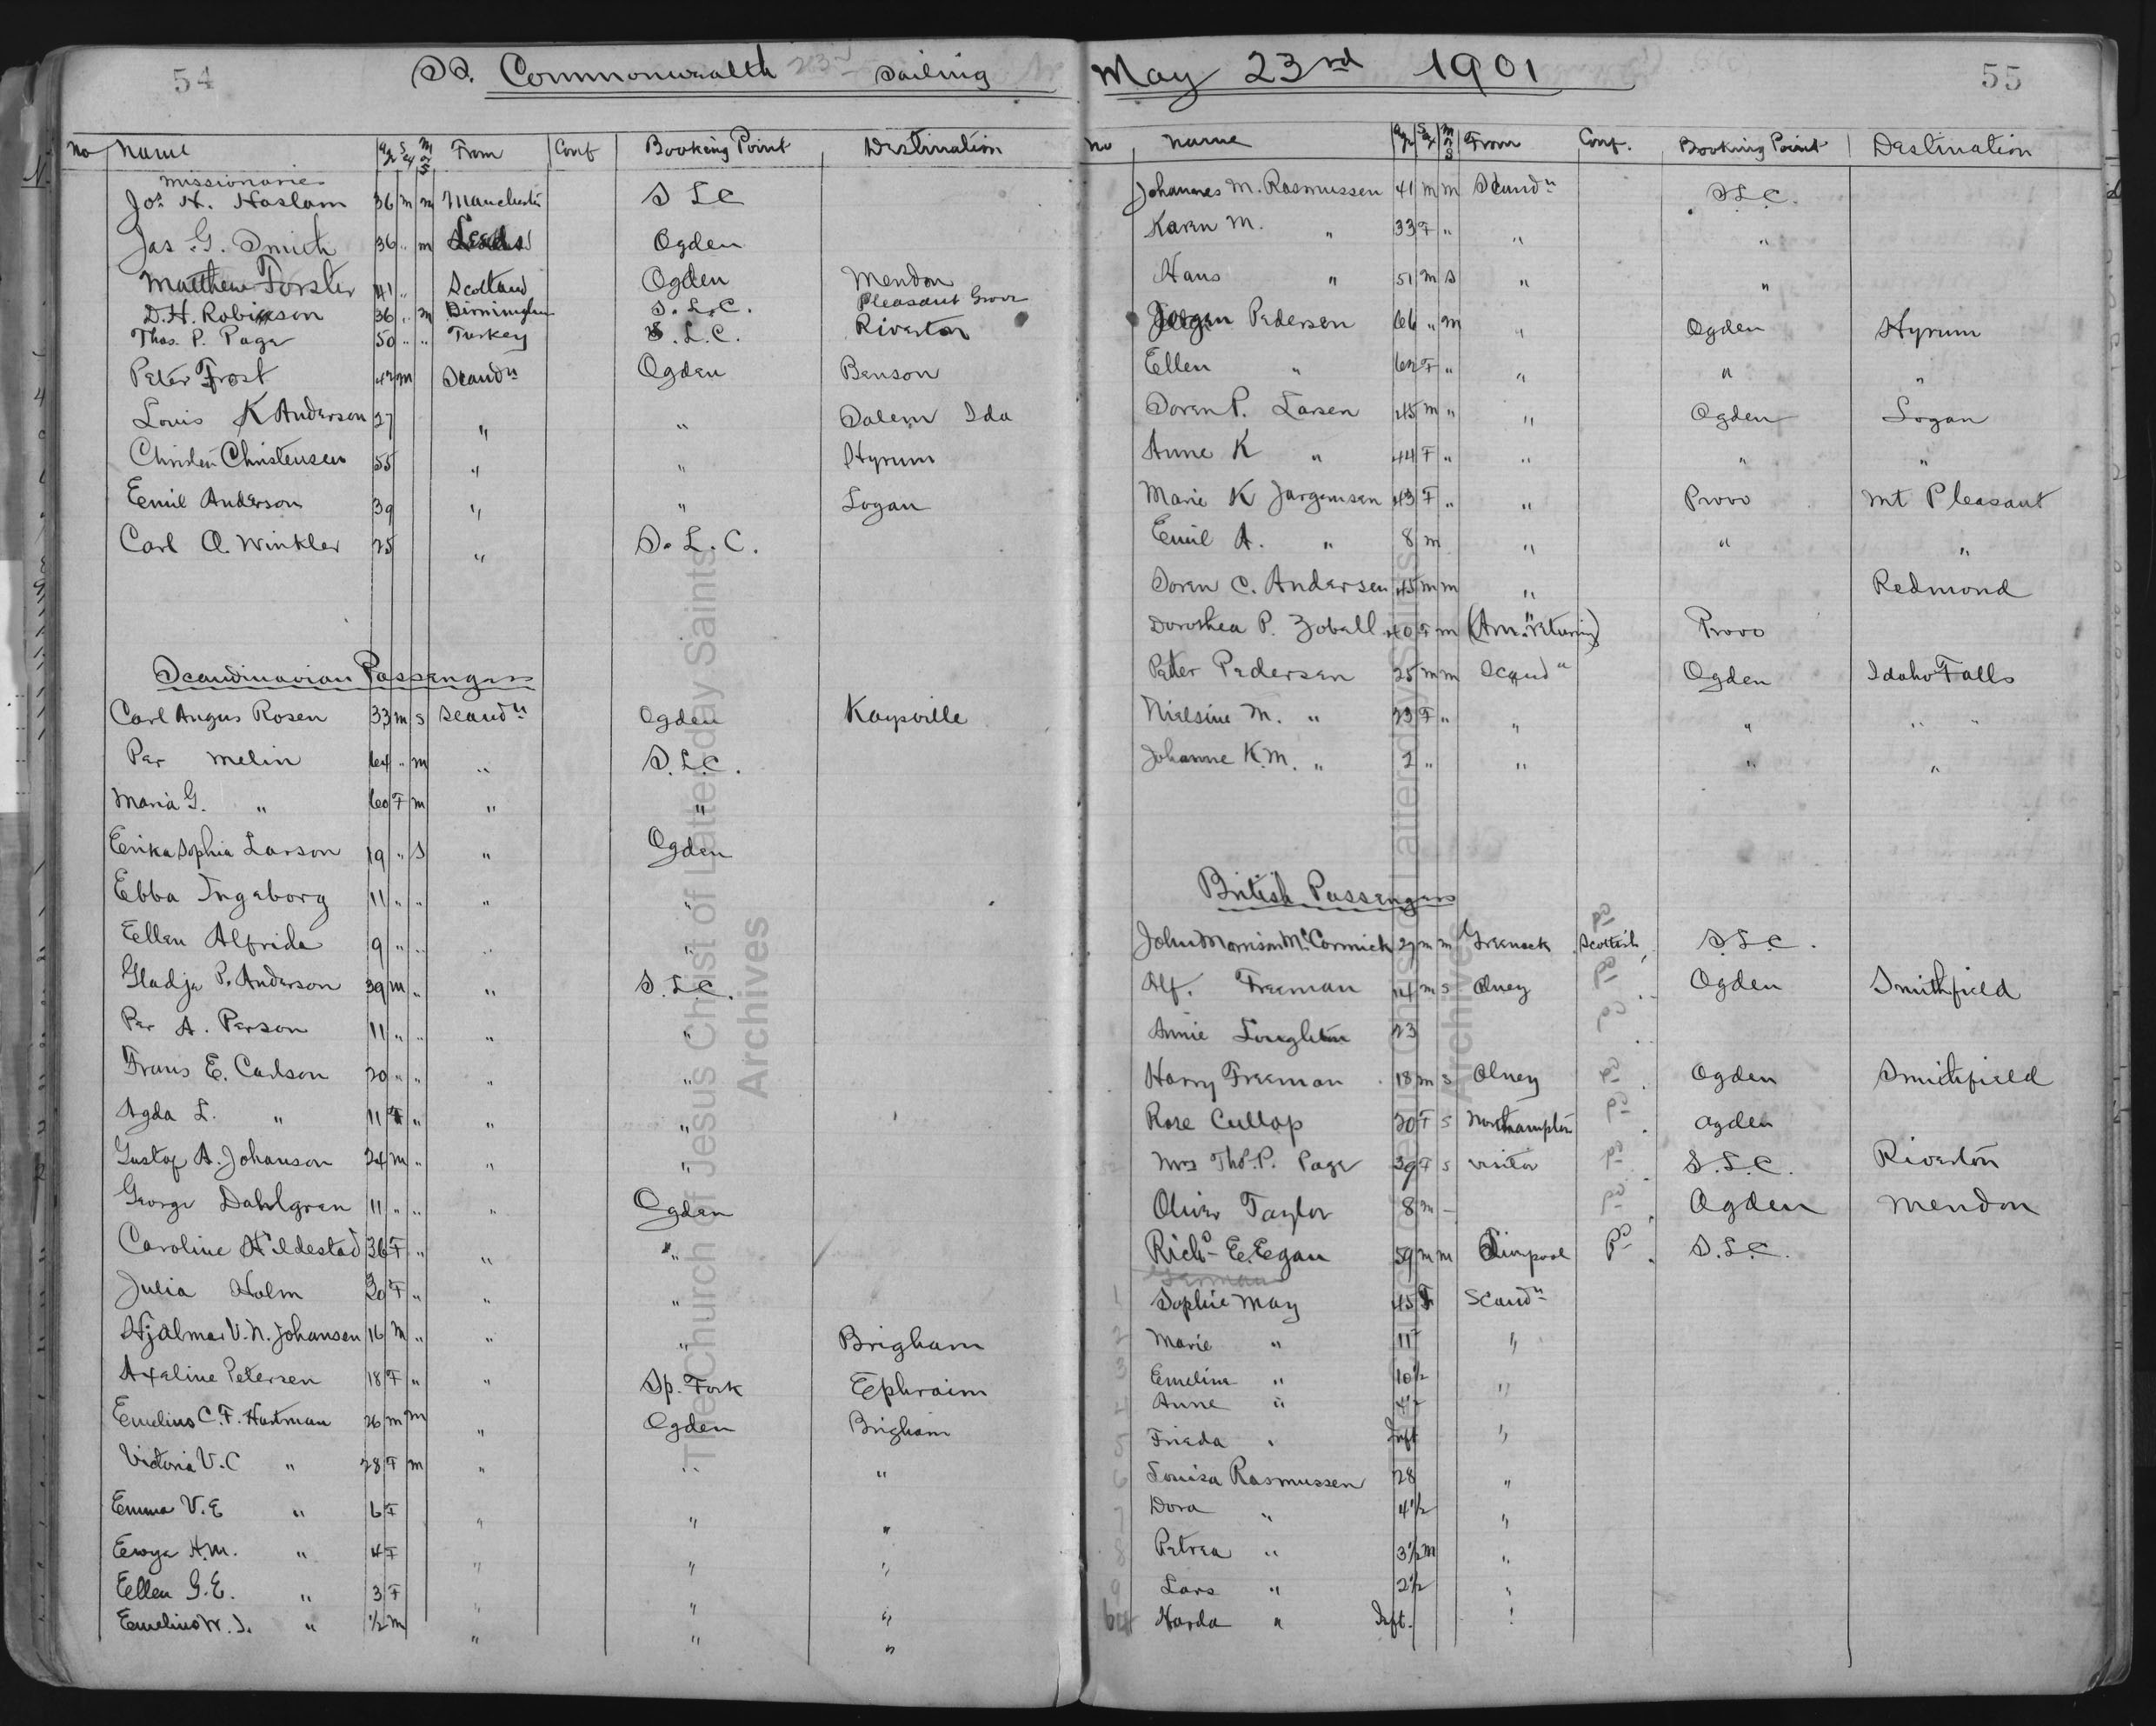 54
SS. Commonwealth Sailing
No Name Age Sex M or S From Conf Booking Point Destination
Missionaries
Jos H. Haslam 36 m m Manchester S L C
Jas. G. Smith 36 " m Leeds Ogden
Matthew Forster 41 " Scotland Ogden Mendon
D. H. Robinson 36 " m Birmingham S. L. C. Pleasant Grove
Thos. P. Page 50 " " Turkey S. L. C. Riverton
Peter Frost 42 m Scandn Ogden Benson
Louis K Anderson 27 " " Salem Ida
Christen Christensen 55 " " Hyrum
Emil Anderson 39 " " Logan
Carl A. Winkler 25 " S. L. C.
Scandinavian Passengers
Carl Angus Rosen 33 m s Scandn Ogden Kaysville
Per Melin 64 " m " S. L. C.
Maria G. " 60 F m " "
Erika Sophia Larson 19 " S " Ogden
Ebba Ingeborg 11 " " " "
Ellen Alfrida 9 " " " "
Gladja P. Anderson 39 m " " S. L. C.
Per A. Person 11 " " " "
Frans E. Carlson 20 " " " "
Agda L. " 11 F " " "
Gustaf A. Johanson 24 m " " "
George Dahlgren 11 " " " Ogden
Caroline Hildestad 36 F " " "
Julia Holm 20 F " " "
Hjalmar V. N. Johansen 16 m " " " Brigham
Axeline Petersen 18 F " " Sp. Fork Ephraim
Emelius C. F. Hartman 26 m m " Ogden Brigham
Victoria V. C " 28 F m " " "
Emma V. E " 6 F " " "
H. M. " 4 F " " "
Ellen G. E. " 3 F " " "
Emelius W. J. " 1/2 m " " "
May 23rd 1901
55
No Name Age Sex M or S From Conf. Booking Point Destination
Johannes M. Rasmussen 41 m m Scandn S. L. C.
Karen M. " 33 F " " "
Hans " 51 m s " "
Jorgen Pedersen 66 " m " Ogden Hyrum
Ellen " 62 F " " " "
Soren P. Larsen 45 m " " Ogden Logan
Anne K " 44 F " " " "
Marie K Jorgensen 43 F " " Provo Mt Pleasant
Emil A. " 8 m " " "
Soren C. Andersen 45 m m " Redmond
Dorothea P. Zobell 40 F m (Amn returning) Provo
Peter Pedersen 25 m m Scandn Ogden Idaho Falls
Nielsine M. " 23 F " " " " "
Johanne K. M. " 2 " " " "
British Passengers
John Morrison McCormick 27 m m Greenock Scottish Pd S. L. C.
Alf. Freeman 14 m s Olney Pd Ogden Smithfield
Annie Loughton 23 Pd
Harry Freeman 18 m s Olney Pd Ogden Smithfield
Rose Cullop 20 F s Northampton Pd Ogden
Mrs Thos. P. Page 39 F s visitor Pd S. L. C. Riverton
Oliver Taylor 8 m – Pd Ogden Mendon
Richd E. Egan 59 m m Liverpool Pd S. L. C.
German
1 Sophie May 45 F Scandn
2 Marie " 11 "
3 Emeline " 10 1/2 "
4 Anne "
5 Frieda " Inft "
6 Louisa Rasmussen 28 "
7 Dora " 4 1/2 "
8 Petrea " 3 1/2 m "
9 Lars " 2 1/2 "
Harda " Inft. "
The Church of Jesus Christ of Latter-day Saints
Archives
The Church of Jesus Christ of Latter-day Saints
Archives